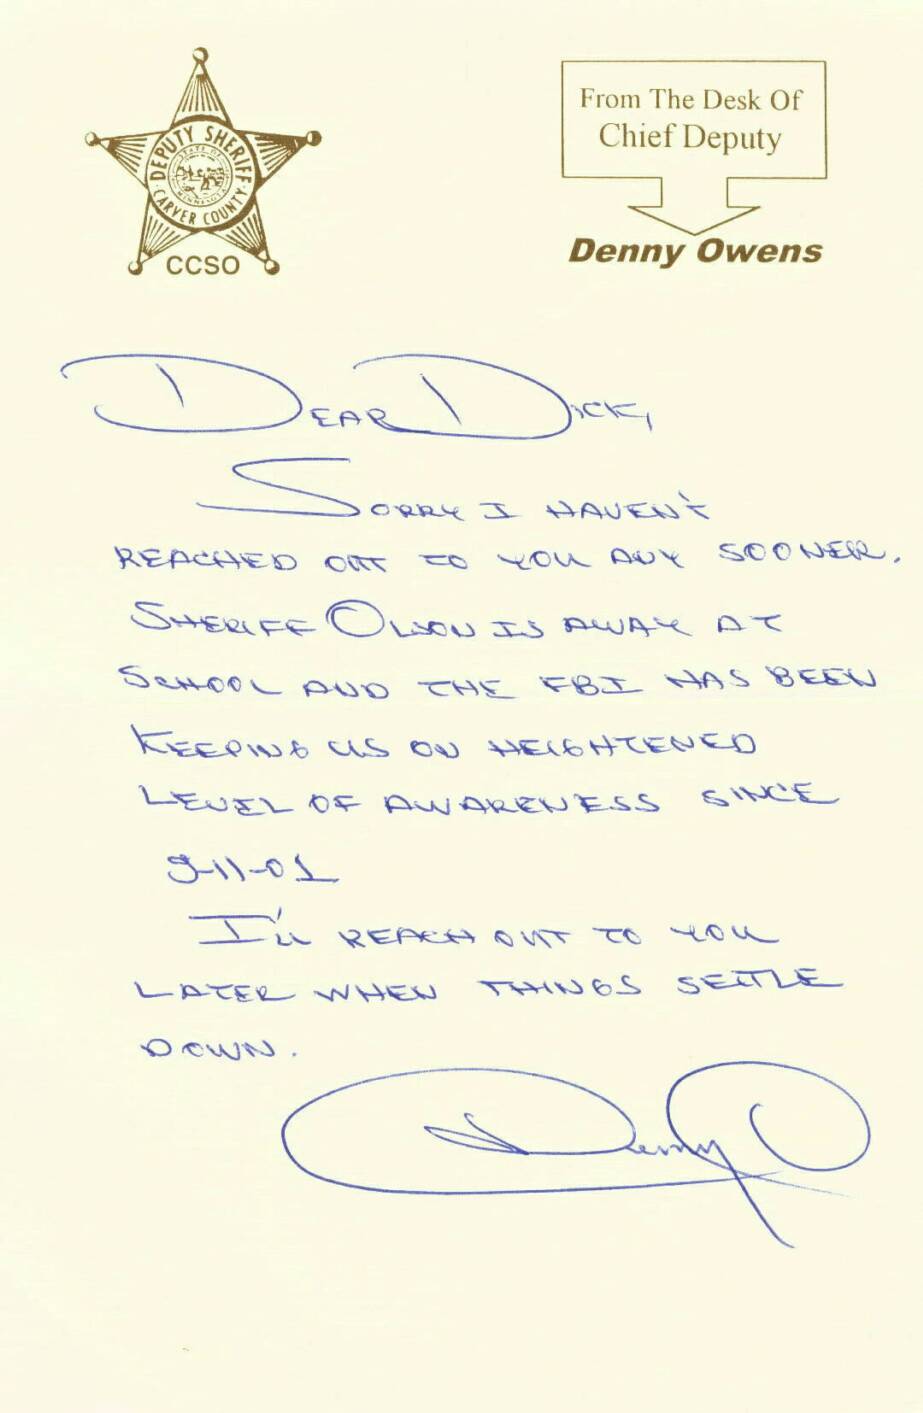 DEPUTY SHERIFF
STATE OF
MINNESOTA
CARVER COUNTY
CCSO
From The Desk Of
Chief Deputy
Denny Owens
DEAR DICK,
SORRY I HAVEN'T
REACHED OUT TO YOU ANY SOONER.
SHERIFF OLSON IS AWAY AT
SCHOOL AND THE FBI HAS BEEN
KEEPING US ON HEIGHTENED
LEVEL OF AWARENESS SINCE
9-11-01
I'll REACH OUT TO YOU
LATER WHEN THINGS SETTLE
DOWN.
Denny O